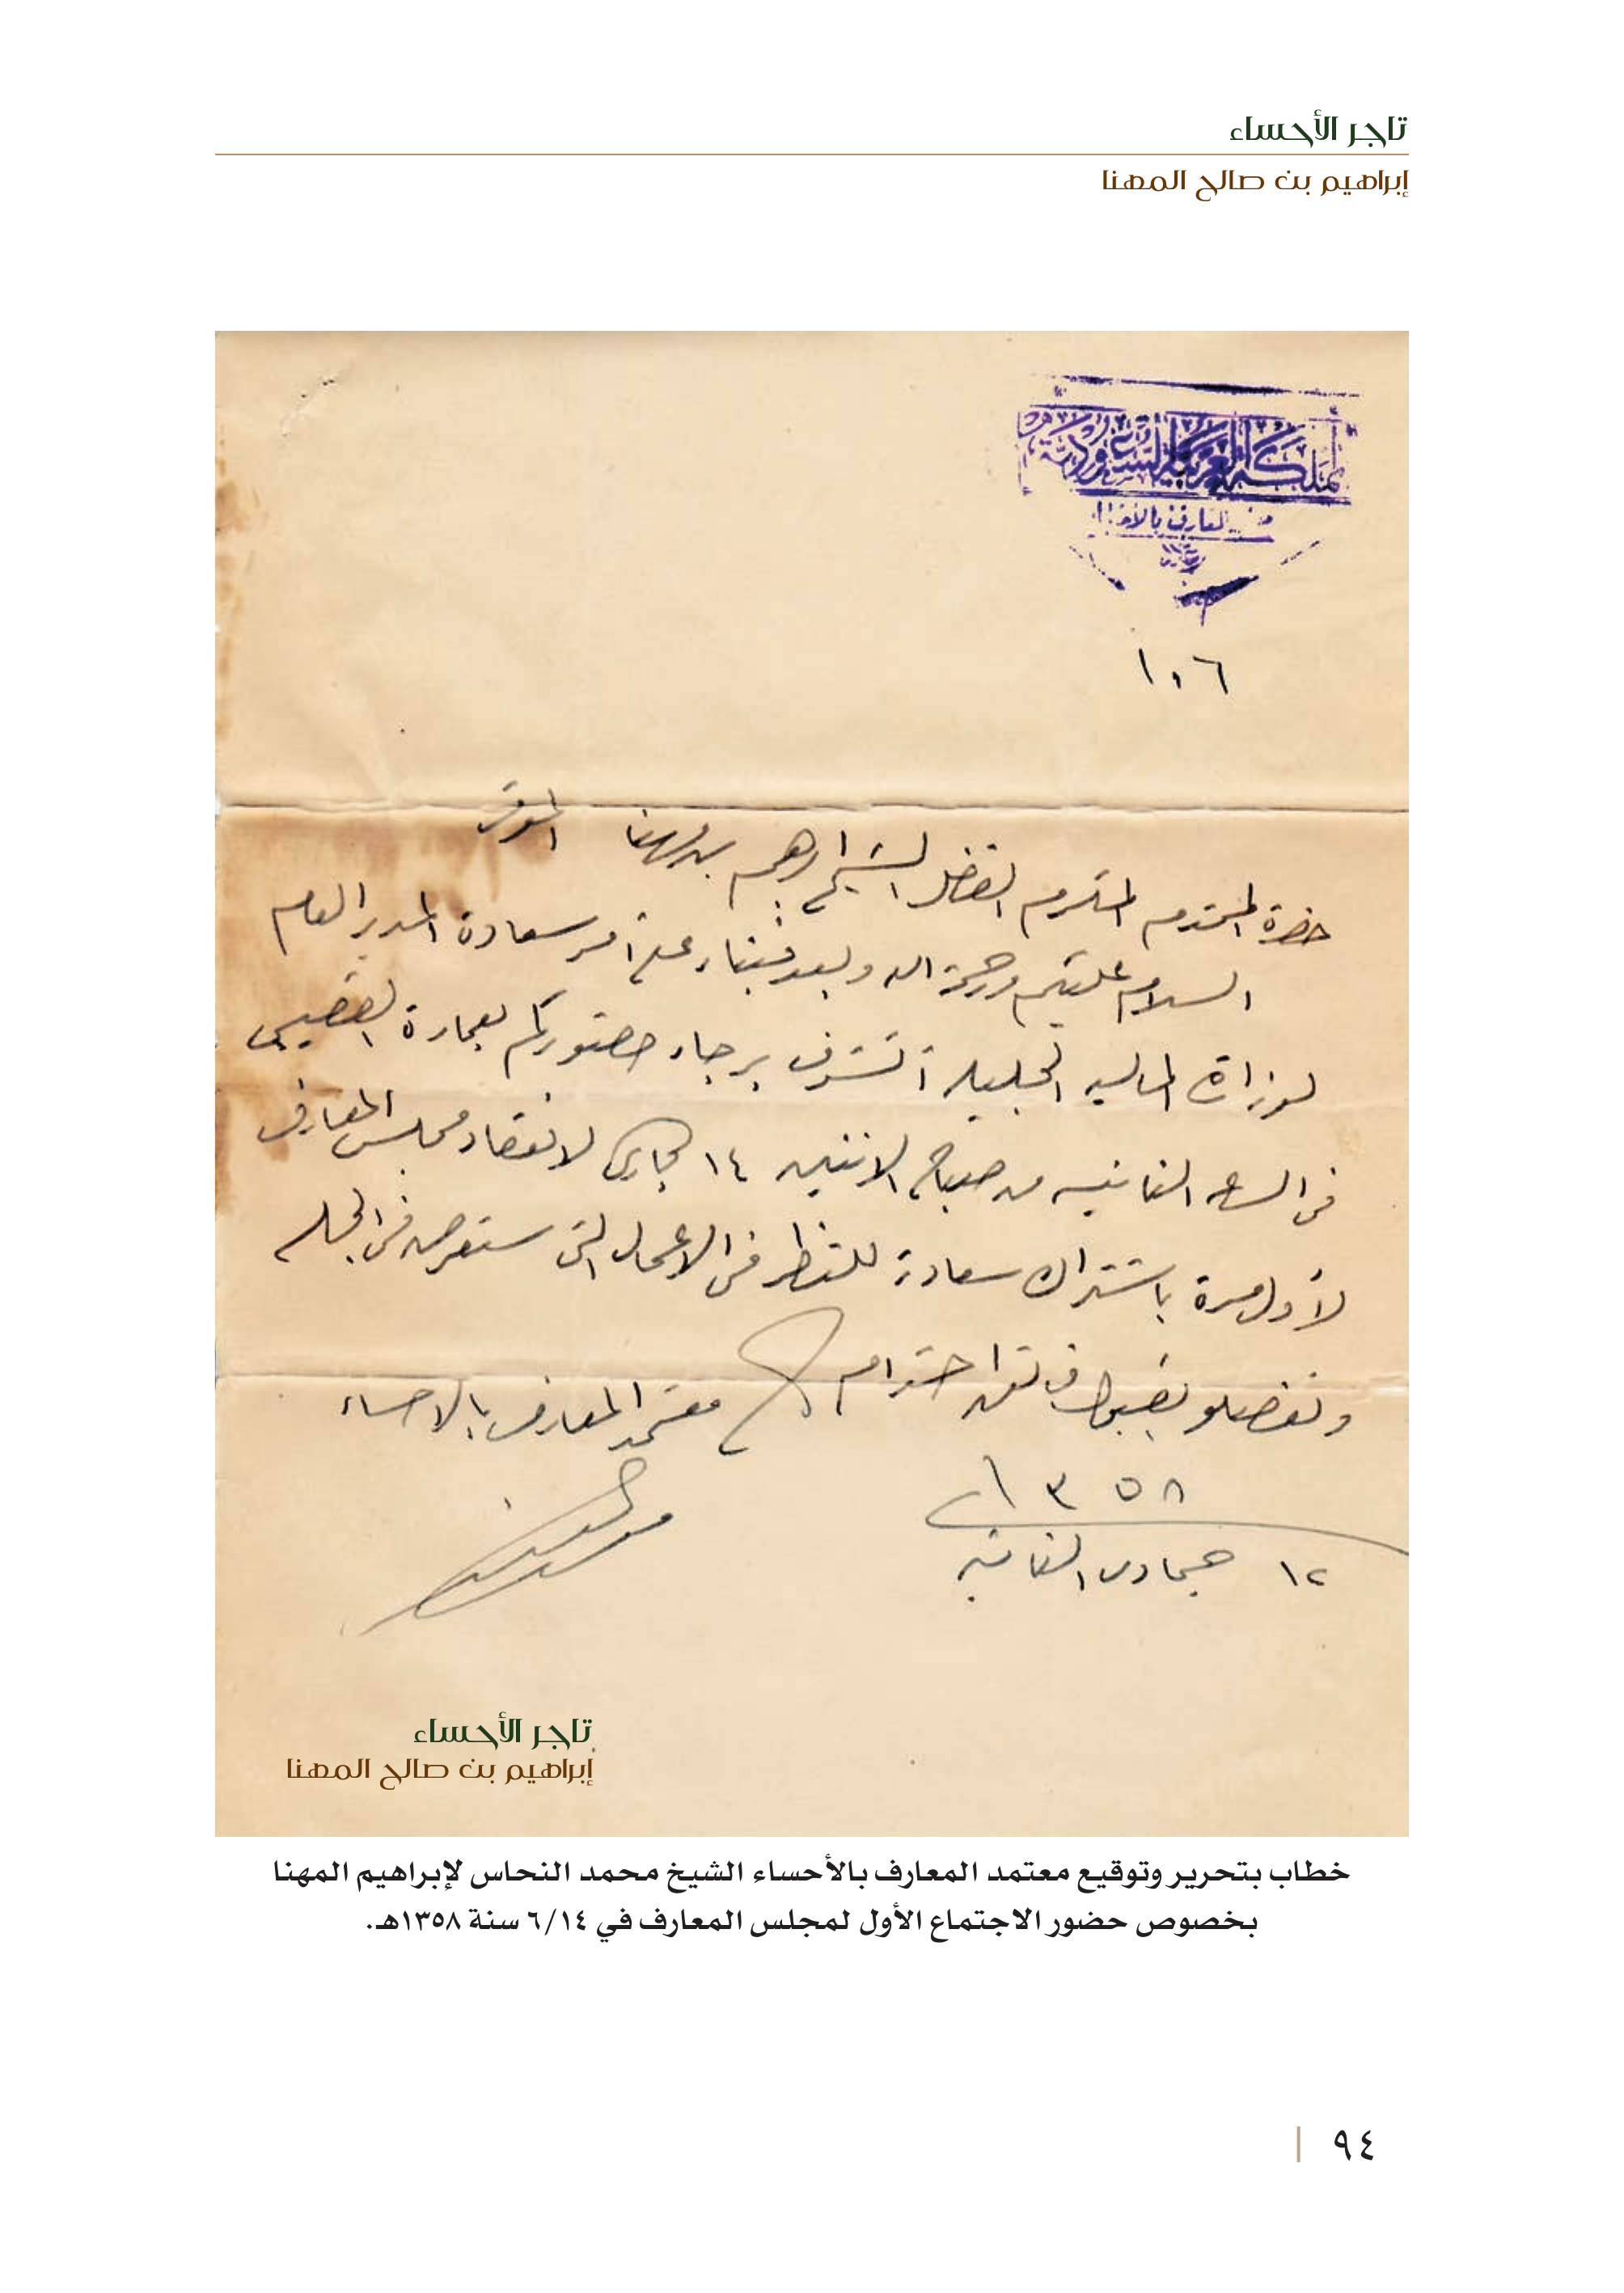 تاجر الأحساء
إبراهيم بن صالح المهنا
المملكة العربية السعودية
المعارف بالأحساء
١٠٦
حضرة المحترم المكرم الفضل الشيخ ابراهيم بن مهنا الموقر
السلام عليكم ورحمة الله وبعد فبناء على أمر سعادة المدير العام
لوزارة الماليه الجليله أتشرف برجاء حضوركم بعمارة القصيبي
في الساعه الثانيه من صباح الاثنين ١٤ الجاري لانعقاد مجلس المعارف
لأول مرة باشتراك سعادة للنظر في الاعمال التي ستعرض في الجلسه
وتفضلو بقبول فائق احترام
معتمد المعارف بالاحساء
١٣٥٨
١٢ جمادى الثانيه
تاجر الأحساء
إبراهيم بن صالح المهنا
خطاب بتحرير وتوقيع معتمد المعارف بالأحساء الشيخ محمد النحاس لإبراهيم المهنا
بخصوص حضور الاجتماع الأول لمجلس المعارف في ٦/١٤ سنة ١٣٥٨هـ.
٩٤